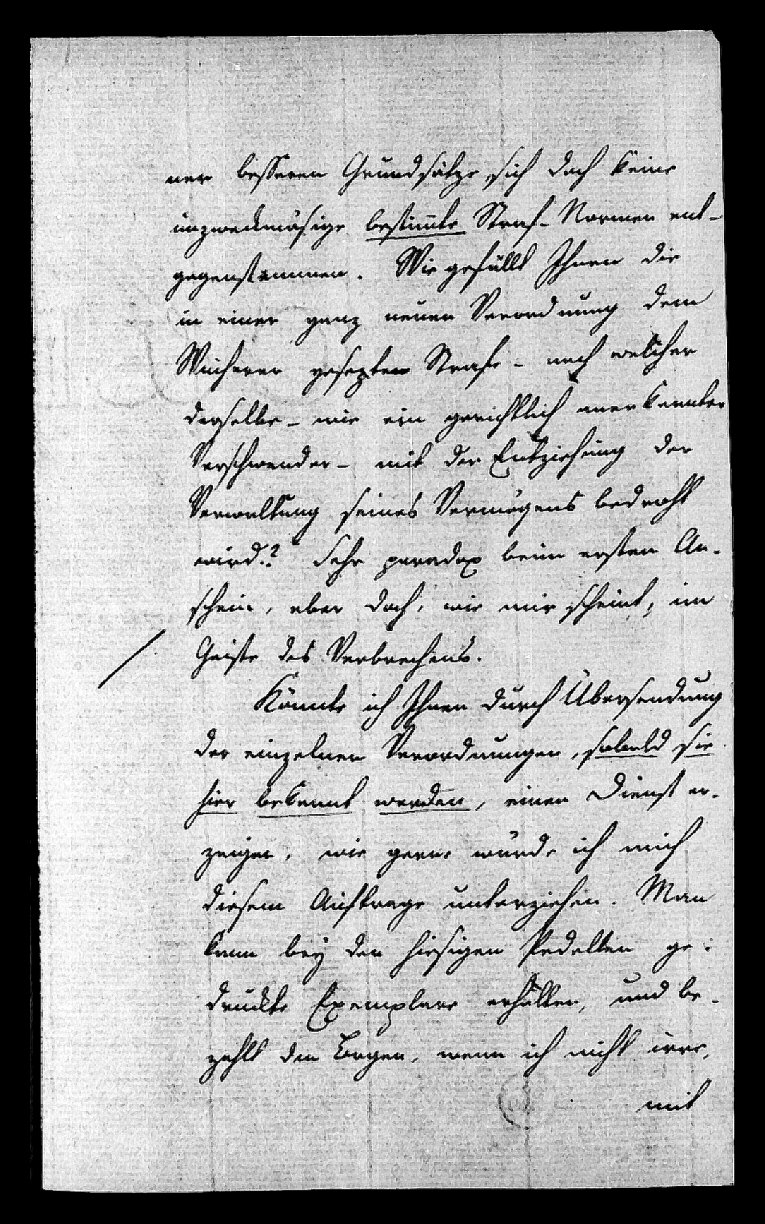 ner besseren Grundsätze sich doch keine
unzweckmäsige bestimmte Straf-Normen ent-
gegenstemmen. Wie gefällt Ihnen die
in einer ganz neuen Verordnung dem
Wucherer gesezte Strafe - nach welcher
derselbe - wie ein gerichtlich anerkannter
Verschwender - mit der Entziehung der
Verwaltung seines Vermögens bedroht
wird.? Sehr paradox beim ersten An-
schein, aber doch, wie mir scheint, im
Geiste des Verbrechens.
Könnte ich Ihnen durch Übersendung
der einzelnen Verordnungen, sobald sie
hier bekannt werden, einen Dienst er-
zeigen, wie gerne würde ich mich
diesem Auftrage unterziehen. Man
kann bey den hiesigen Pedellen ge-
druckte Exemplare erhalten, und be-
zahlt den Bogen, wenn ich nicht irre,
mit